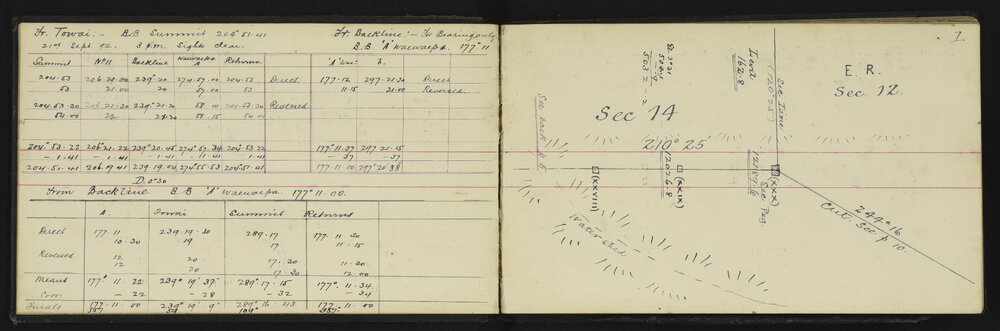 Fr. Towai:- B.B. Summit 204° 51. 41
21st Sept. 92. 3 P.M. Sights clear.
Summit No 11 Backline Waewaepa A Returns.
204. 53 206. 21. 00 239°. 20 274. 57. 00 204. 53 Direct
53 21. 00 20 57. 00 53
204. 53. 30 206. 21. 30 239°. 21. 30 58. 00 204. 53. 30 Reversed
54. 00 22 21. 30 58. 15 54. 00
204° 53. 22 206° 21. 22 239° 20. 45 274° 57. 34 204° 53 22
- 1. 41 - 1. 41 - 1. 41 - 1. 41 - 1. 41
204. 51. 41 206. 19. 41 239. 19. 04 274. 55. 53 204° 51. 41
D. 0' 30
Fr. Backline:- for Bearing only
B.B. 'A' Waewaepa. 177°. 11
'A' Wai:
177. 12 297. 21. 30 Direct
11. 15 21. 00 Reversed
177° 11. 37 297 21. 15
- 37 - 37
177. 11. 00 297° 20' 38
From Backline. B.B 'A' Waewaepa. 177° 11. 00.
A. Towai Summit Returns
Direct 177. 11 239. 19. 30 289. 17 177. 11. 30
10. 30 19 17 11. 15
Reversed 12 20 17. 30 11. 30
12 20 17. 30 12. 00
Means 177° 11. 22 239° 19' 37" 289° 17. 15 177° 11. 34
Corr. - 22 - 28 - 32 - 34
Finals 177. 11. 00 239° 19' 9" 289°. 16. 43 177. 11. 00
7
E. R.
Sec 12.
Sec 14
See back p 5.
210° 25
(XXVIII)
(XXIX)
(2026.8
(XXX)
See Peg
(2187.6
See Line
(210° 25')
162.8
249° 16
Cut. See p 10.
Water shed